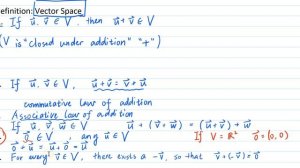 efinition: Vector Space
= If u⃗, v⃗ ∈ V, then u⃗+v⃗ ∈ V
(V is "closed under addition" "+")
If u⃗, v⃗ ∈ V, u⃗+v⃗ = v⃗+u⃗
commutative law of addition
Associative law of addition
If u⃗, v⃗, w⃗ ∈ V u⃗ + (v⃗+w⃗) = (u⃗+v⃗) + w⃗
0⃗ ∈ V, any u⃗ ∈ V If V = R² 0⃗ = (0,0)
0⃗ + u⃗ = u⃗+0⃗ = u⃗
For every v⃗ ∈ V, there exists a -v⃗, so that v⃗+(-v⃗) = 0⃗